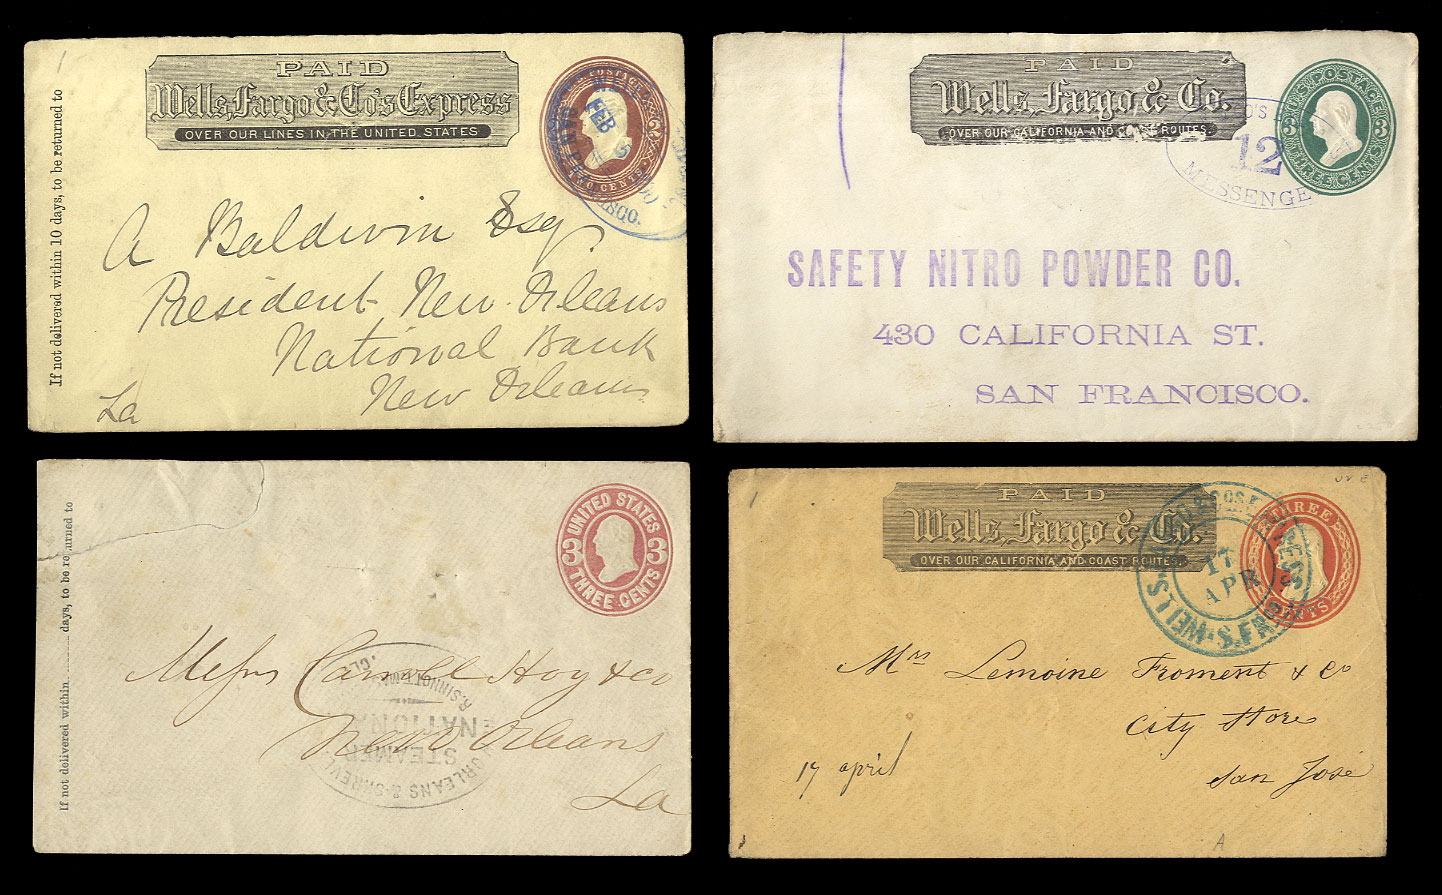 1
PAID
Wells, Fargo & Co's Express
OVER OUR LINES IN THE UNITED STATES
U.S. POSTAGE
2 2
TWO CENTS
FEB
If not delivered within 10 days, to be returned to
A Baldwin Esq.
President New Orleans
National Bank
New Orleans
La
PAID
Wells, Fargo & Co.
OVER OUR CALIFORNIA AND COAST ROUTES.
U.S. POSTAGE
3 3
THREE CENTS
12
MESSENGE
SAFETY NITRO POWDER CO.
430 CALIFORNIA ST.
SAN FRANCISCO.
If not delivered within ........ days, to be returned to
UNITED STATES
3 3
THREE CENTS
Messrs Carroll Hoy & Co
New Orleans
La
R. SINNOTT
NATIONA
STEAMER
ORLEANS & SHREV
1
PAID
Wells, Fargo & Co.
OVER OUR CALIFORNIA AND COAST ROUTES.
THREE
CENTS
17
APR
WELLS
S. FR
Mrs Lemoine Froment & Co
City Store
San José
17 april
A